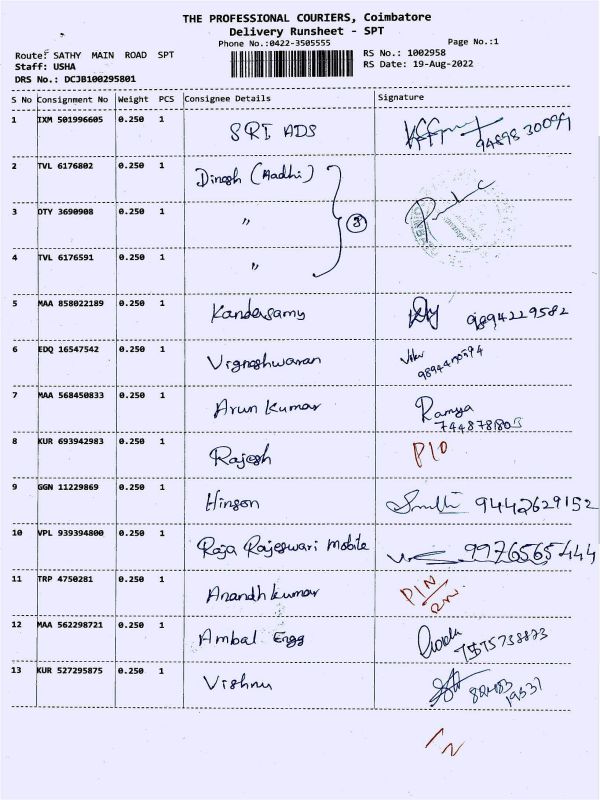 THE PROFESSIONAL COURIERS, Coimbatore
Delivery Runsheet - SPT
Phone No.:0422-3505555 Page No.:1
Route: SATHY MAIN ROAD SPT RS No.: 1002958
Staff: USHA RS Date: 19-Aug-2022
DRS No.: DCJB100295801
S No Consignment No Weight PCS Consignee Details Signature
1 IXM 501996605 0.250 1 SRI ADS
2 TVL 6176802 0.250 1 Dinesh (Aadhi)
3 OTY 3690908 0.250 1 〃 3
4 TVL 6176591 0.250 1 〃
5 MAA 858022189 0.250 1 Kandasamy 9894229582
6 EDQ 16547542 0.250 1 Vigneshwaran
7 MAA 568450833 0.250 1 Arun Kumar Ramya
8 KUR 693942983 0.250 1 Rajesh P10
9 GGN 11229869 0.250 1 Hinson 9442629152
10 VPL 939394800 0.250 1 Raja Rajeswari Mobile 9976565444
11 TRP 4750281 0.250 1 Anandh kumar PIN
12 MAA 562298721 0.250 1 Ambal Engg
13 KUR 527295875 0.250 1 Vishnu